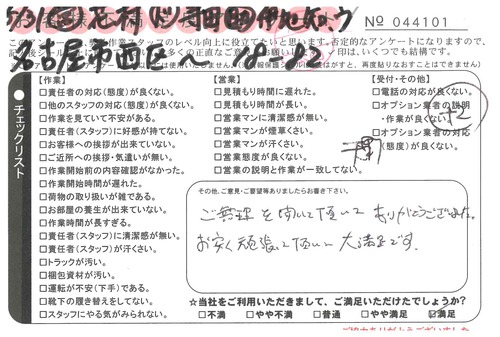 No 044101
名古屋市西区へ
チェックリスト
【作業】
□責任者の対応(態度)が良くない。
□他のスタッフの対応(態度)が良くない。
□作業を見ていて不安がある。
□責任者(スタッフ)に好感が持てない。
□お客様への挨拶が出来ていない。
□ご近所への挨拶・気遣いが無い。
□作業開始前の内容確認がなかった。
□作業開始時間が遅れた。
□荷物の取り扱いが雑である。
□お部屋の養生が出来ていない。
□作業時間が長すぎる。
□責任者(スタッフ)に清潔感が無い。
□責任者(スタッフ)が汗くさい。
□トラックが汚い。
□梱包資材が汚い。
□運転が不安(下手)である。
□靴下の履き替えをしてない。
□スタッフにやる気がみられない。
【営業】
□見積もり時間に遅れた。
□見積もり時間が長い。
□営業マンに清潔感が無い。
□営業マンが煙草くさい。
□営業マンが汗くさい。
□営業態度が良くない。
□営業の説明と作業が一致してない。
【受付・その他】
□電話の対応が良くない。
□オプション業者の説明
・作業が良くない
□オプション業者の対応
(態度)が良くない。
その他、ご意見・ご要望等ありましたらお書き下さい。
ご無理を聞いて頂いてありがとうございました。
お安く頑張って頂いて大満足です。
☆当社をご利用いただきまして、ご満足いただけたでしょうか?
□不満 □やや不満 □普通 □やや満足 ☑満足
ご協力ありがとうございました